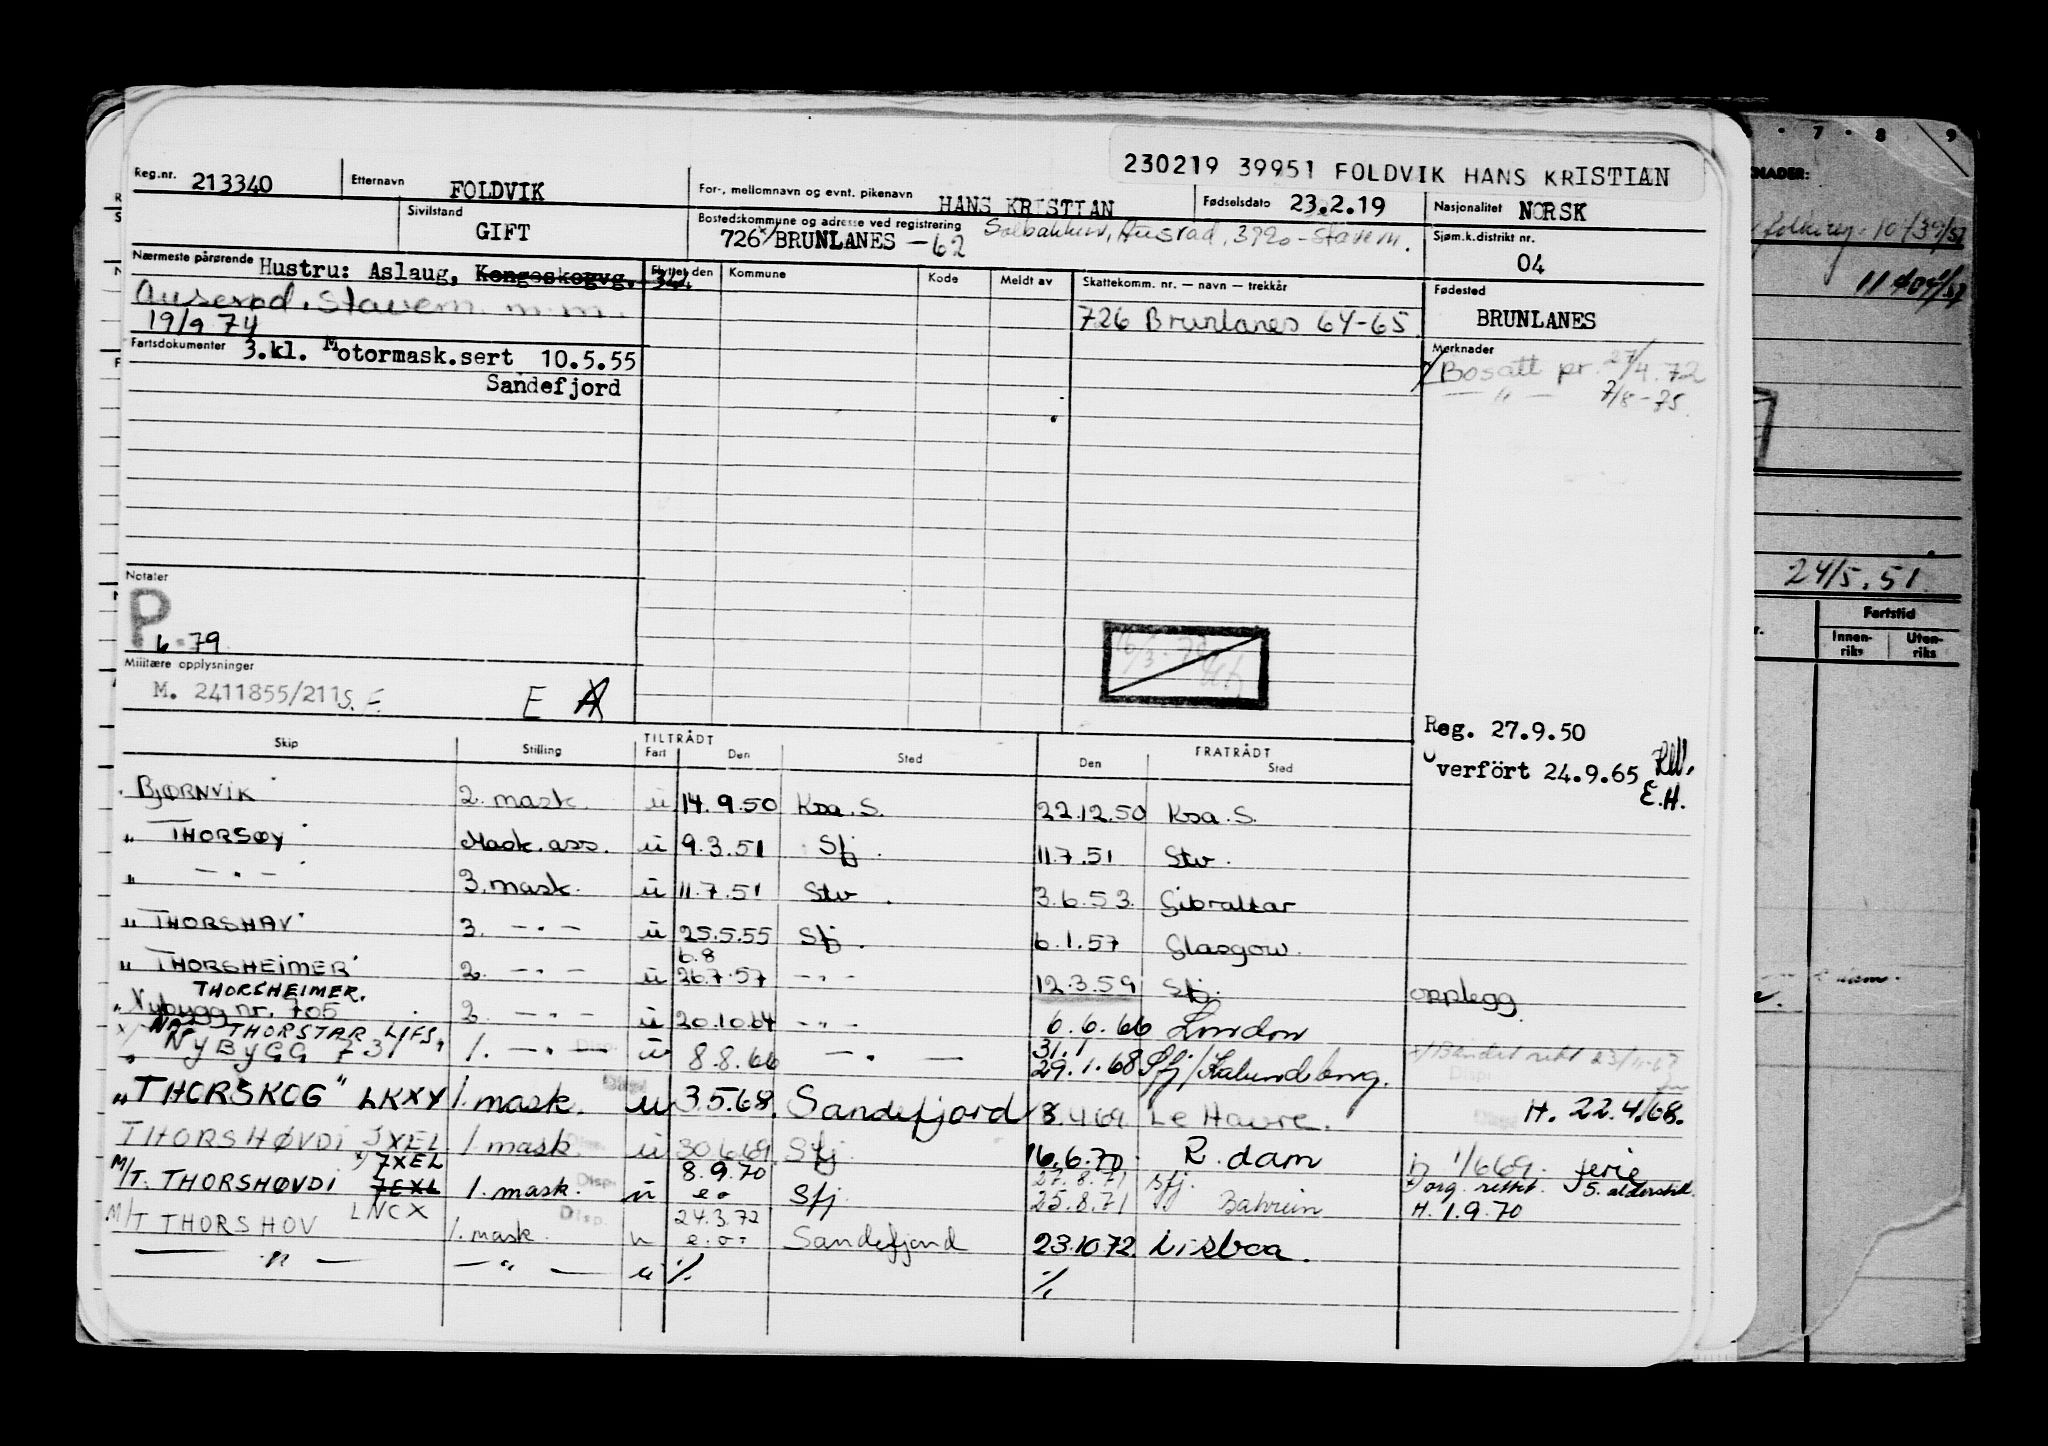 230219 39951 FOLDVIK HANS KRISTIAN
Reg.nr. 213340
Etternavn FOLDVIK
For-, mellomnavn og evnt. pikenavn HANS KRISTIAN
Fødselsdato 23.2.19
Nasjonalitet NORSK
Sivilstand GIFT
Bostedskommune og adresse ved registrering
726 x/ BRUNLANES -62 Solbakken, Ausrød, 3920 - Stavern.
Sjøm.k.distrikt nr. 04
Nærmeste pårørende Hustru: Aslaug, Kongeskogvg. 344
Auserød. Stavern. m.m.
19/9 74
Flyttet den Kommune Kode Meldt av Skattekomm. nr. — navn — trekkår
726 Brunlanes 64-65
Fødested
BRUNLANES
Fartsdokumenter 3.kl. Motormask.sert 10.5.55
Sandefjord
Merknader
x/ Bosatt pr. 27/4.72
— " — 7/8-75.
Notater
P
6.79
Militære opplysninger
M. 2411855/211 S.F.
E A
Reg. 27.9.50
Overfört 24.9.65
E.H.
Skip Stilling TILTRÅDT Fart Den Sted FRATRÅDT Den Sted
BJØRNVIK 2. mask. u 14.9.50 Ksa.S. 22.12.50 Ksa.S.
" THORSØY Mask.ass. u 9.3.51 Sfj. 11.7.51 Stv.
" — " — 3. mask. u 11.7.51 Stv. 3.6.53. Gibraltar
" THORSHAV 3. — " — u 25.5.55 Sfj. 6.1.57 Glasgow.
" THORSHEIMER 2. — " — u 6.8 26.7.57 — " — 12.3.59 Sfj. opplegg
THORSHEIMER.
" Nybygg nr. 705 2. — " — u 20.10.64 — " — 6.6.66 London
x/ THORSTAR LIFS
" NYBYGG 731 1. — " — u 8.8.66 — " — 31.1 29.1.68 Sfj/Kalundborg.
" THORSKOG" LKXY 1. mask. u 3.5.68. Sandefjord 8.4.69 Le Havre. H. 22.4.68.
THORSHØVDI JXEL 1. mask u 30.6.69 Sfj. 16.6.70. R.dam 1/6 69. ferie
M/T. THORSHØVDI x) 7XEL 7EXL 1. mask. u 8.9.70 e.o Sfj 27.8.71 Sfj. 25.8.71 Bahrein org. rettet. S. alderstill.
H. 1.9.70
M/T THORSHOV LNCX 1. mask. u 24.3.72 e.o. Sandefjord 23.10.72. Lisboa.
— " — — " — u ·/. ·/.
7 8 9
KNADER:
24/5.51
Fartstid
Innen-riks Uten-riks